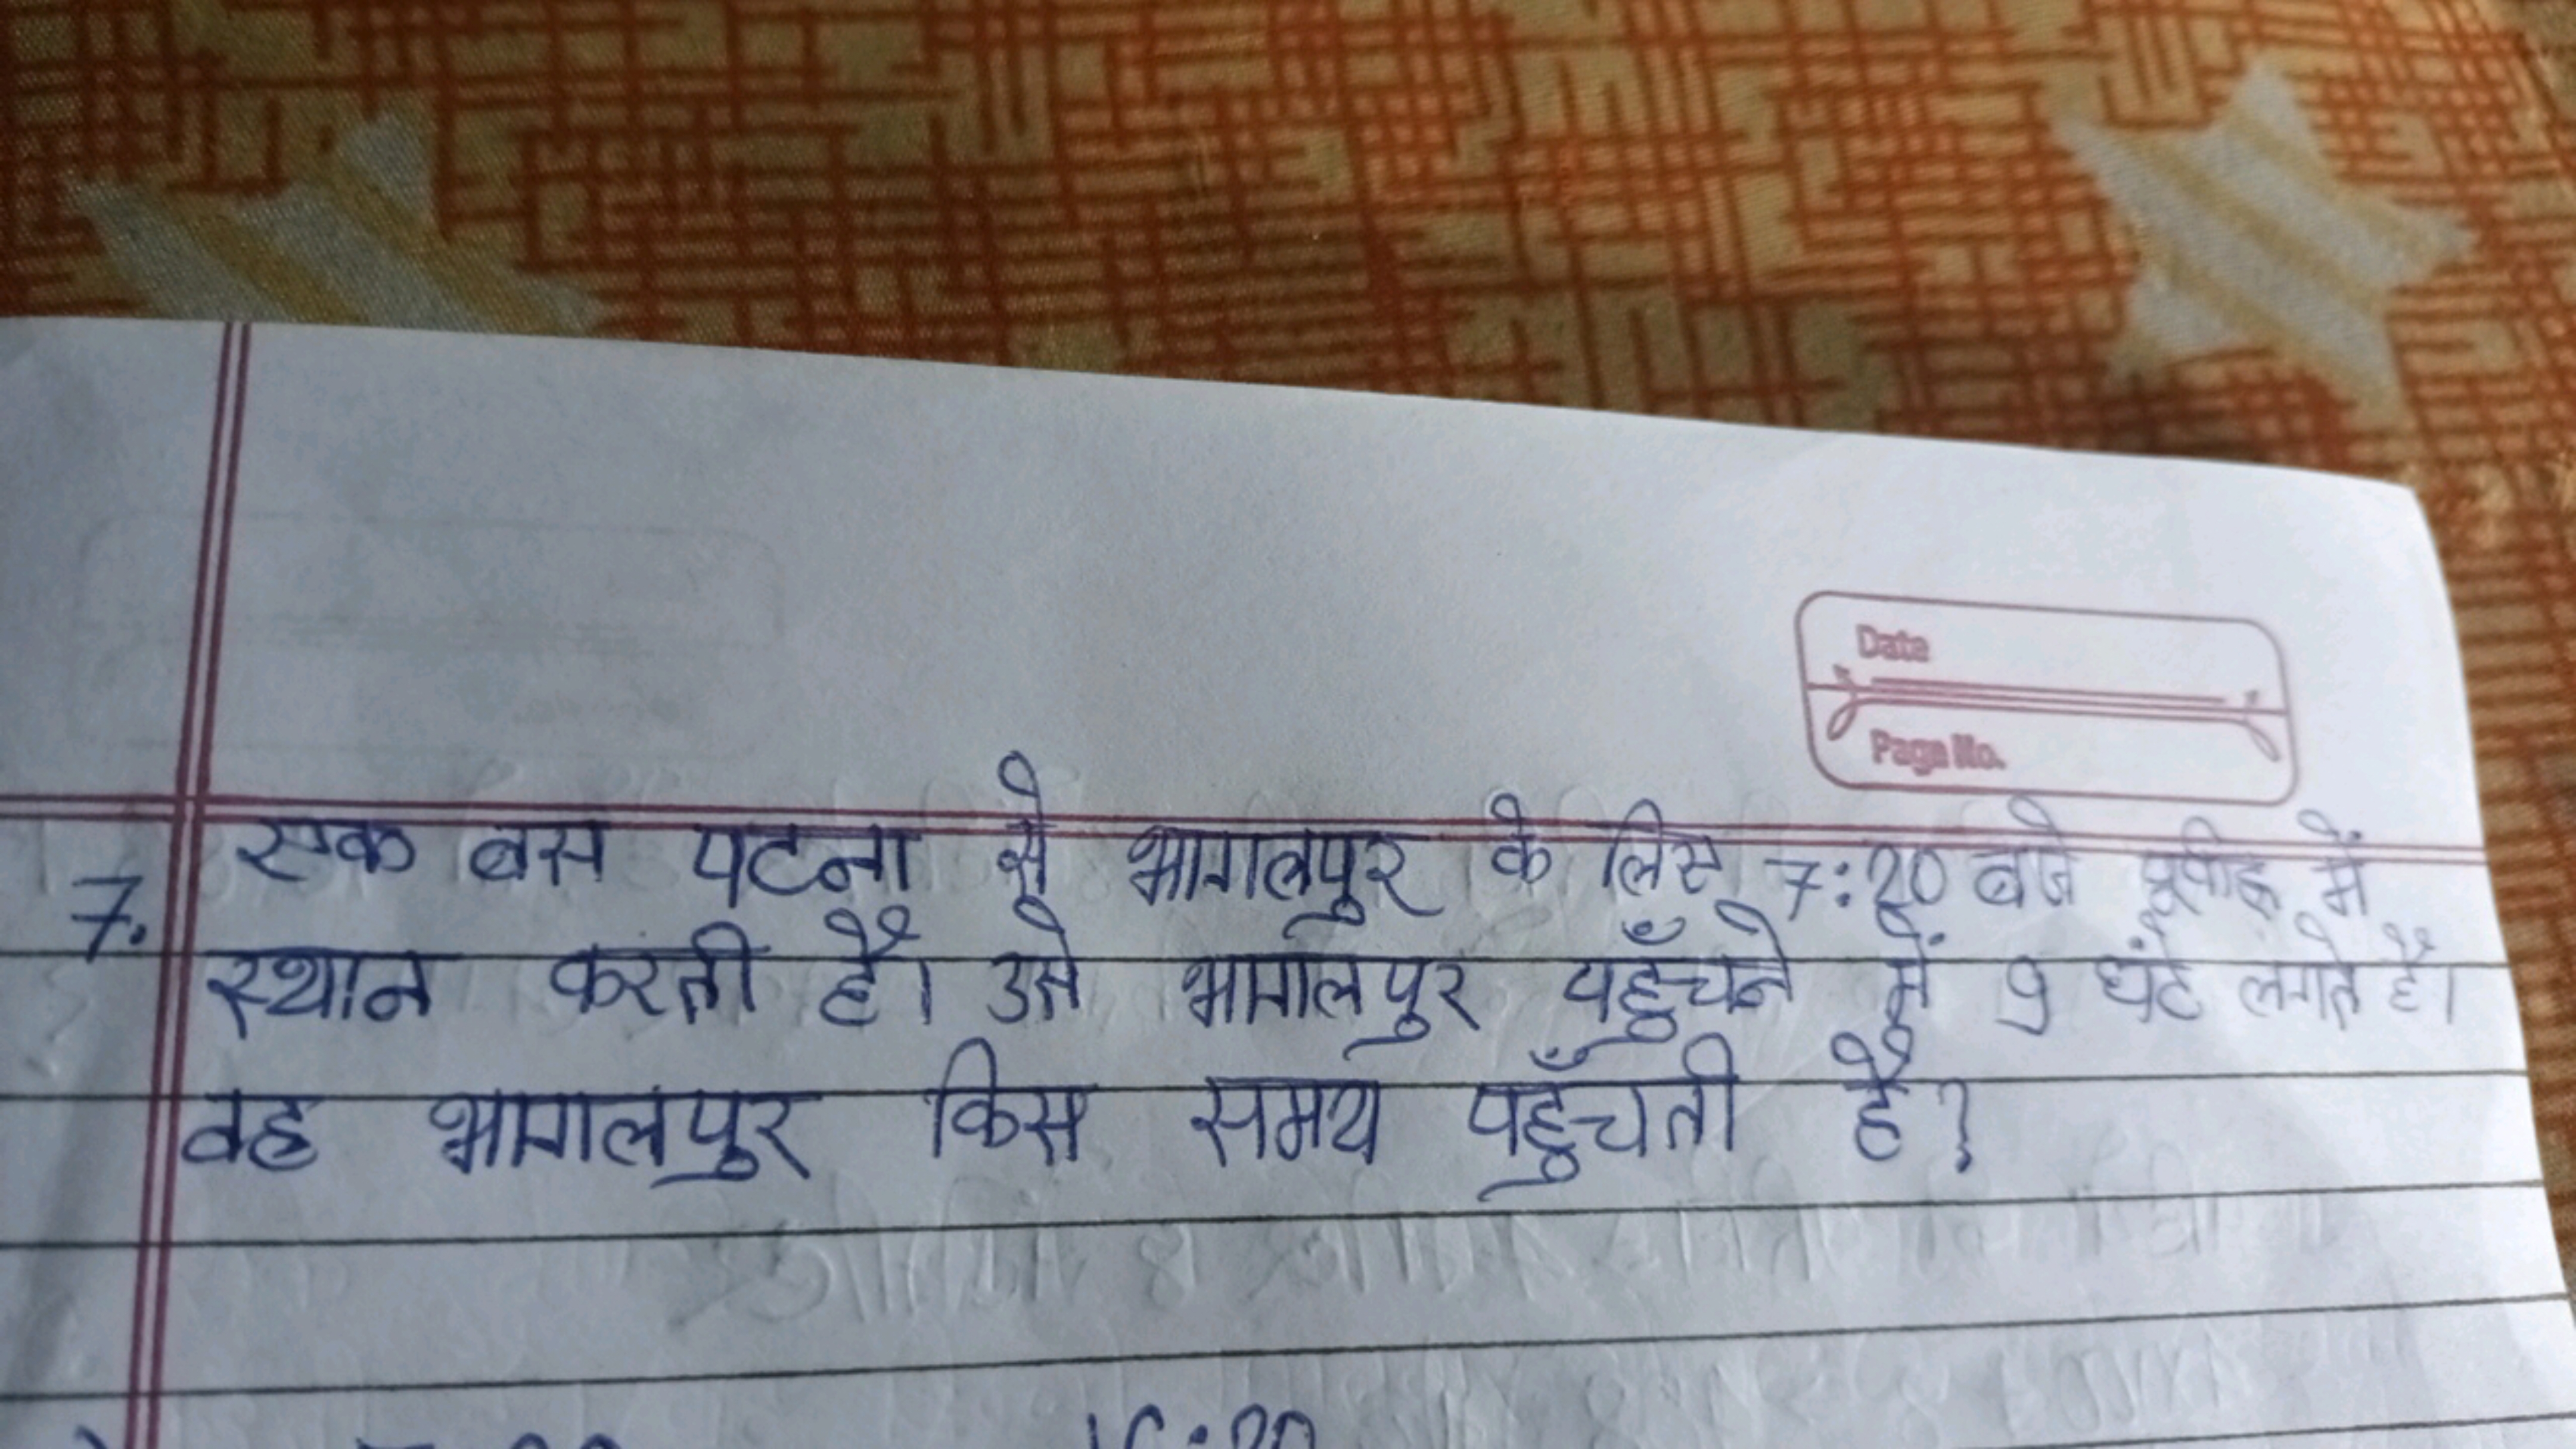 Date
Page No.
7. एक बस पटना से भागलपुर के लिए 7:20 बजे पूर्वाह्न में
स्थान करती है। उसे भागलपुर पहुँचने में 9 घंटे लगते हैं।
वह भागलपुर किस समय पहुँचती है?
16:20